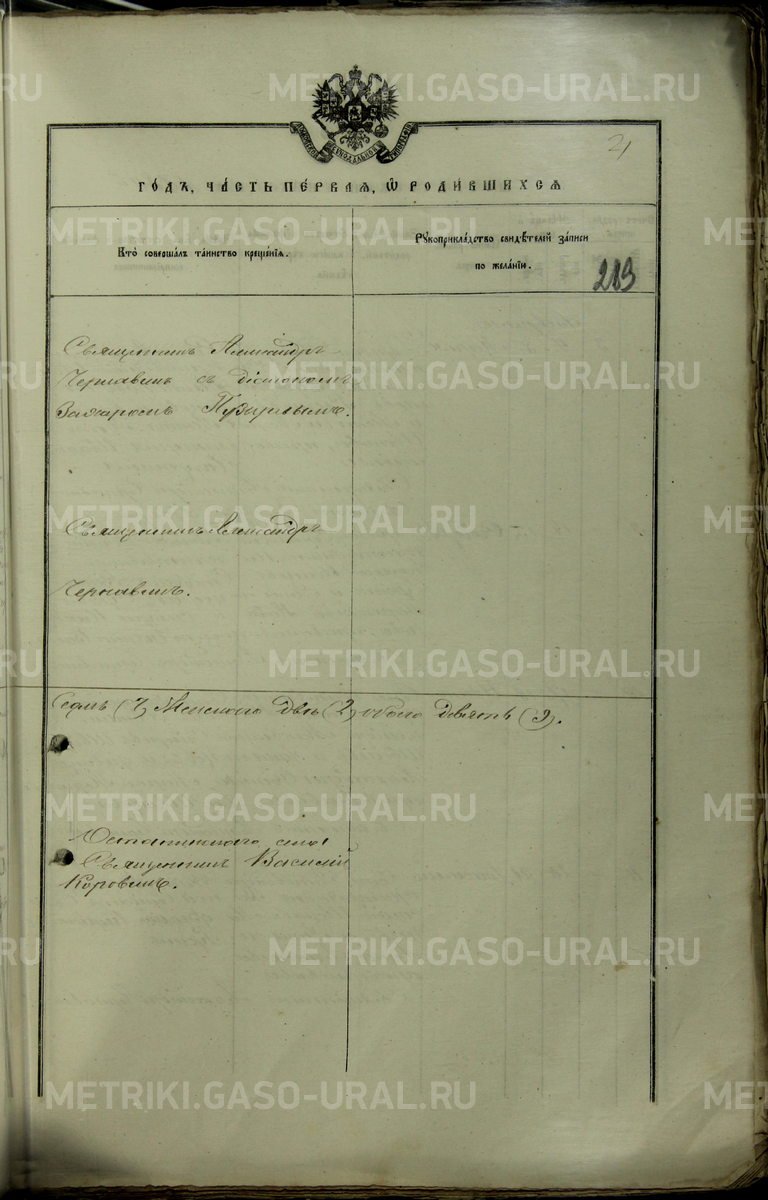 METRIKI.GASO-URAL.RU
21
ГО́ДЪ, ЧА́СТЬ ПЕ́РВАѦ, Ѡ҆ РОДИ́ВШИХСѦ
Кто̀ соверша́лъ та́инство креще́нїѧ.
Рꙋкоприкла́дство свидѣ́телей за́писи
по жела́нїю.
213
Священникъ Александръ
Чернавинъ съ діакономъ
Захаромъ Пузыревымъ.
Священникъ Александръ
Чернавинъ.
Седмь (7) Женскаго двѣ (2) обоего девять (9).
Останинскаго села
Священникъ Василій
Коровинъ.